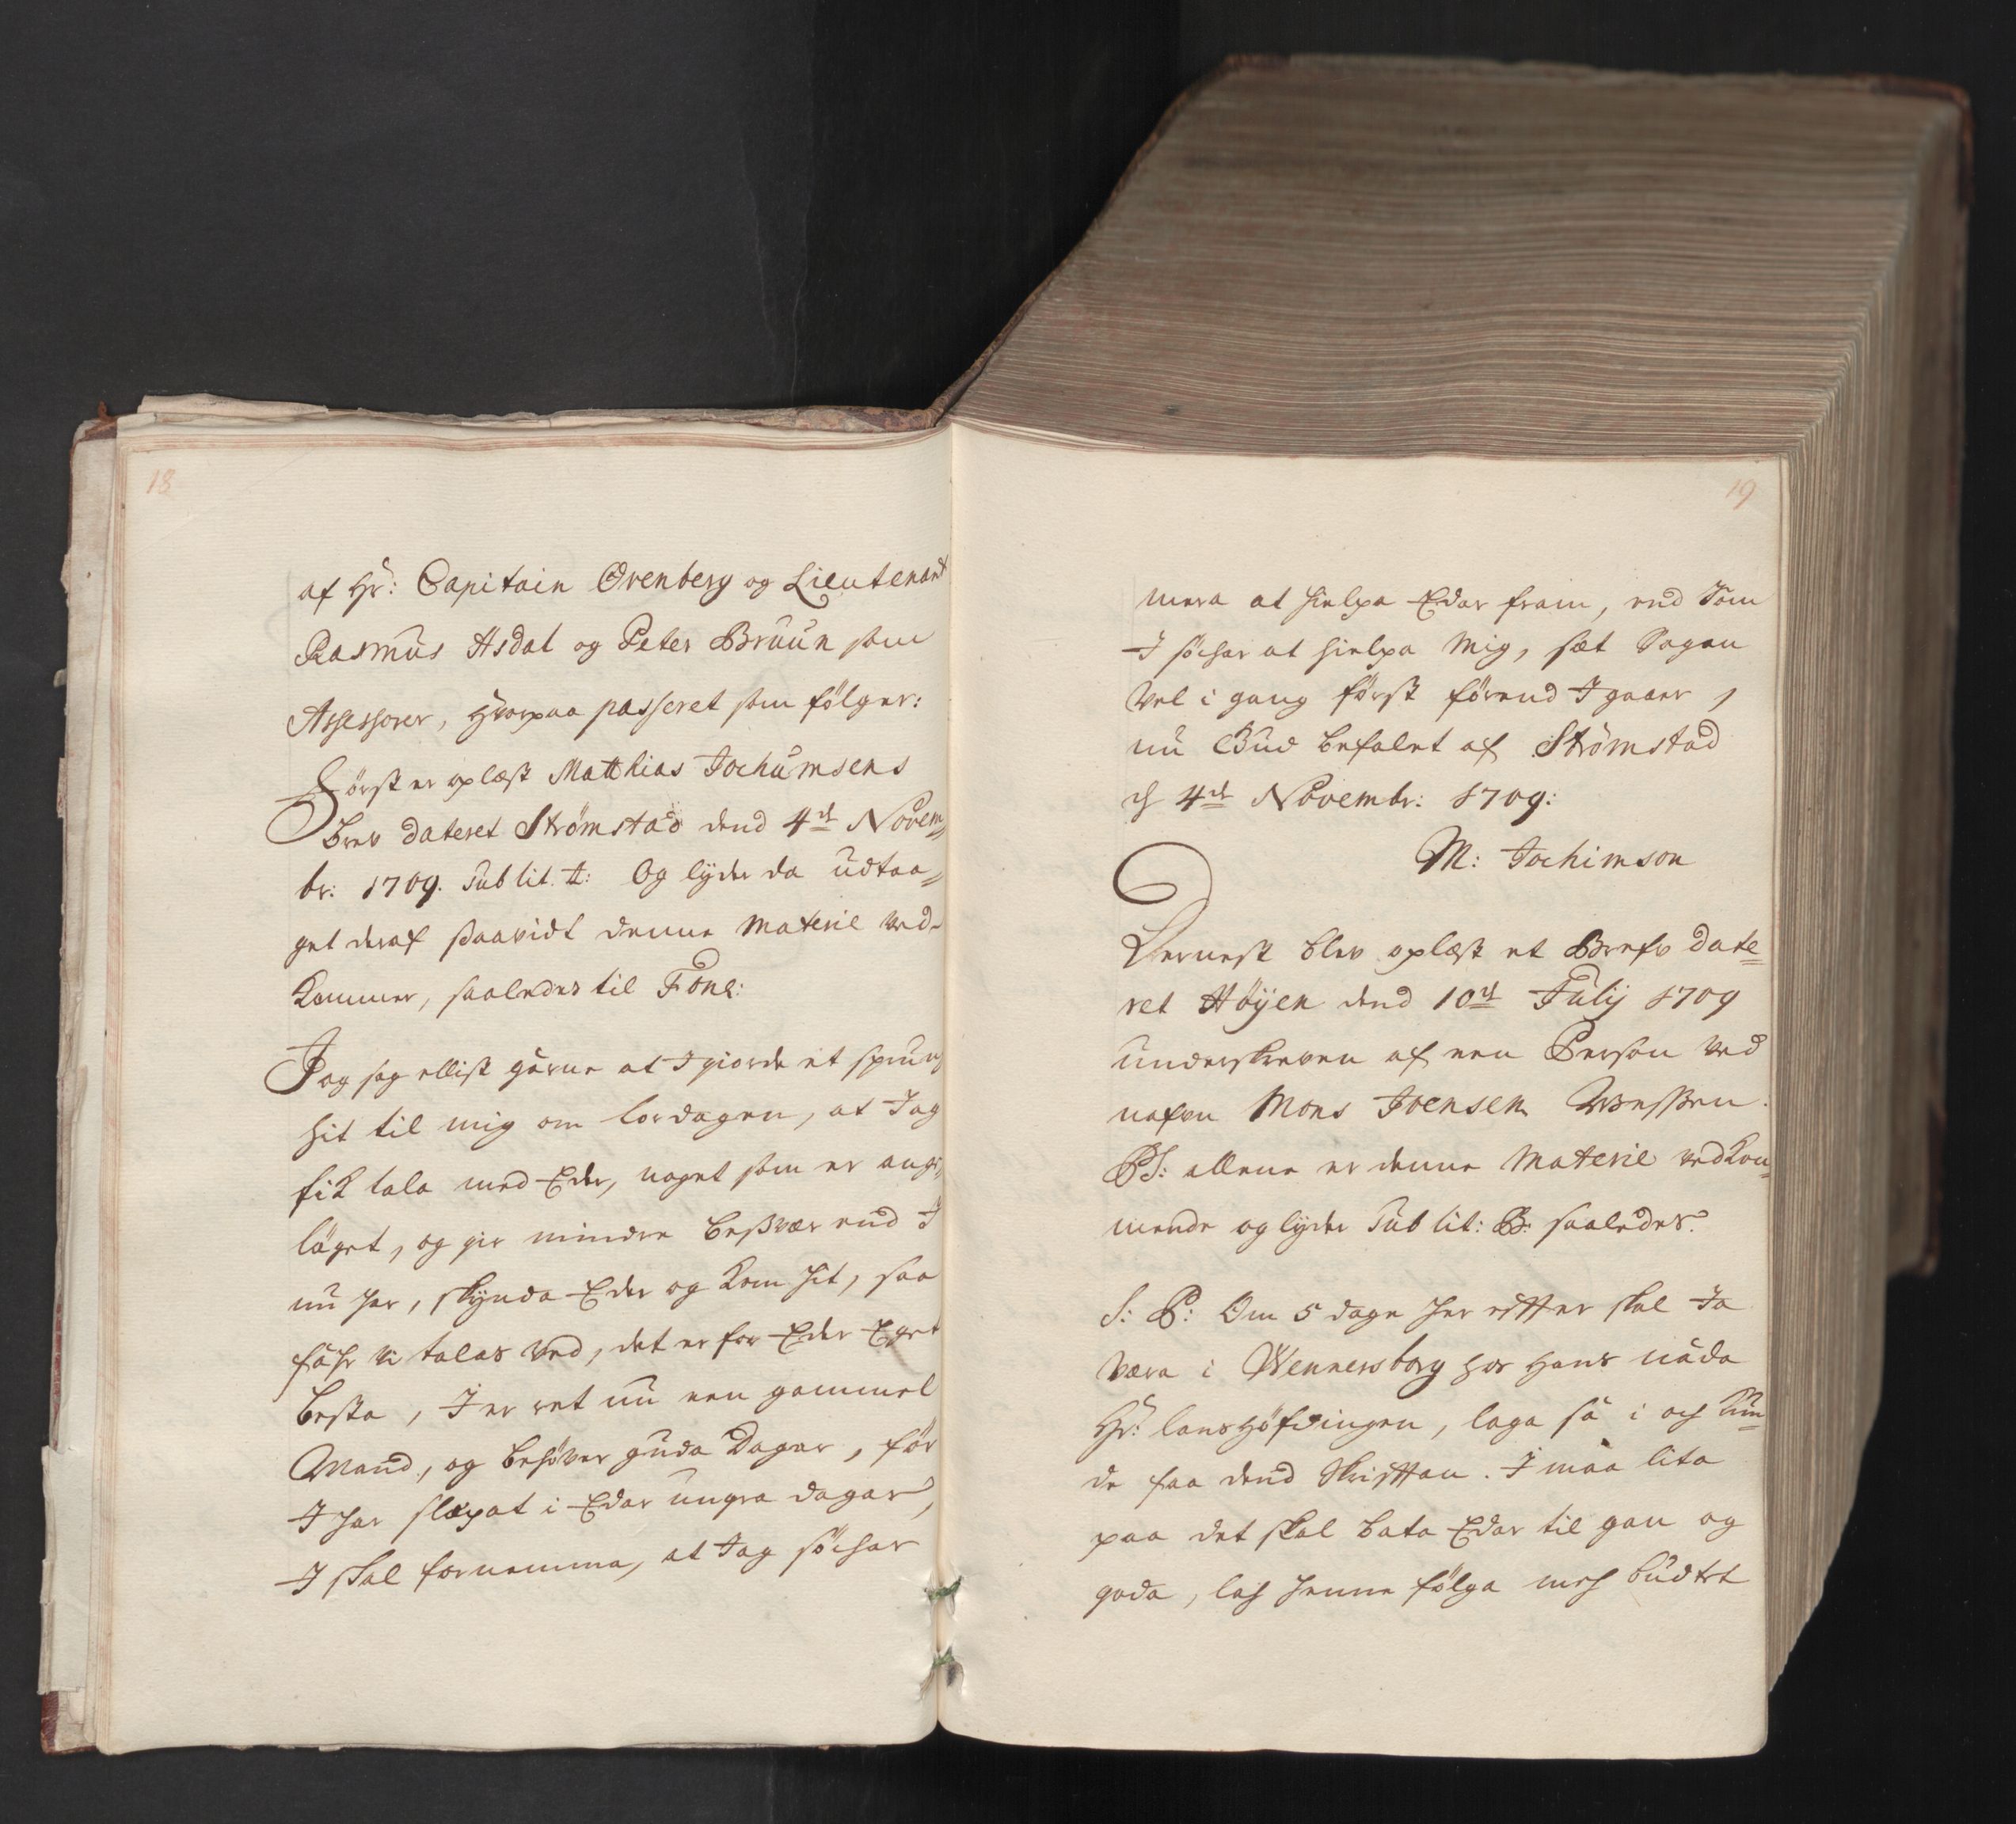 18
af Hr: Capitain Orenberg og Lieutenant
Rasmus Asdal og Peter Bruun som
Assessorer, hvorpaa passeret som fölger:
Först er oplæst Matthias Jochumsens
brev dateret Strömstad dend 4de Novem=
br: 1709. Sub lit. A: Og lyder da udtaa=
get deraf saavidt denne Materie ved-
kommer, saaledes til Fone:
Jag sag ellist gärne at I giorde et sprung
hit til mig om lordagen, at Jag
fik tala med Eder, noget som er angi=
läget, og gir mindre besvær end I
nu har, skynda Eder og kom hit, saa
fåhr vi talas ved, det er for Eder Eget
besta, I er ret nu een gammel
Mand, og behöver guda Dagar, för
I har slæpat i Edar ungra dagar,
I skal fornemma, at Jag söchar
19
mera at hielpa Edar fram, end Som
I söchar at hielpa Mig, sæt Sagen
vel i gang först förend I gaaer,
nu Gud befalet af Strömstad
d 4de Novembr: 1709:
M: Jochimson
Dernest blev oplæst et Brefv date=
ret Höyen dend 10de Julij 1709
underskreven af een Person ved
nafvn Mons Joensen
PS: allene er denne Materie vedkom=
mende og lyder Sub lit: B: saaledes.
S: P: Om 5 dage her efter skal Ja
væra i Wennersborg hos Hans nåda
Hr: lanshöfdingen, laga så i och kun=
de faa dend Skrifften. I maa lita
paa det skal bata Edar til gan og
goda, lah henne fölga meh budet